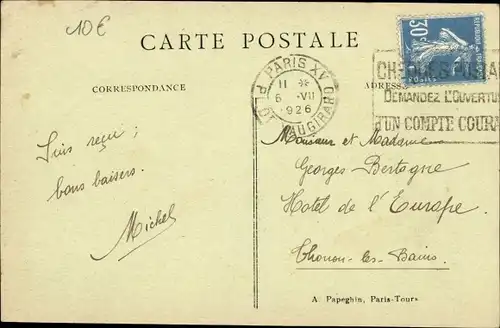 10€
CARTE POSTALE
30
PARIS XV
11 *
6 VII
1926
PL. DE VAUGIRARD
CHEQUES POSTA
DEMANDEZ L'OUVERTU
D'UN COMPTE COURA
CORRESPONDANCE
ADRESSE
Suis reçu ;
bons baisers.
Michel
Monsieur et Madame
Georges Bertagne
Hotel de l'Europe.
Thonon-les-Bains.
A. Papeghin, Paris-Tours.